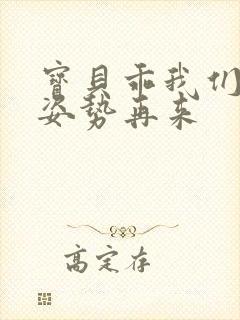 寶貝乖我们
姿势再来
高定存